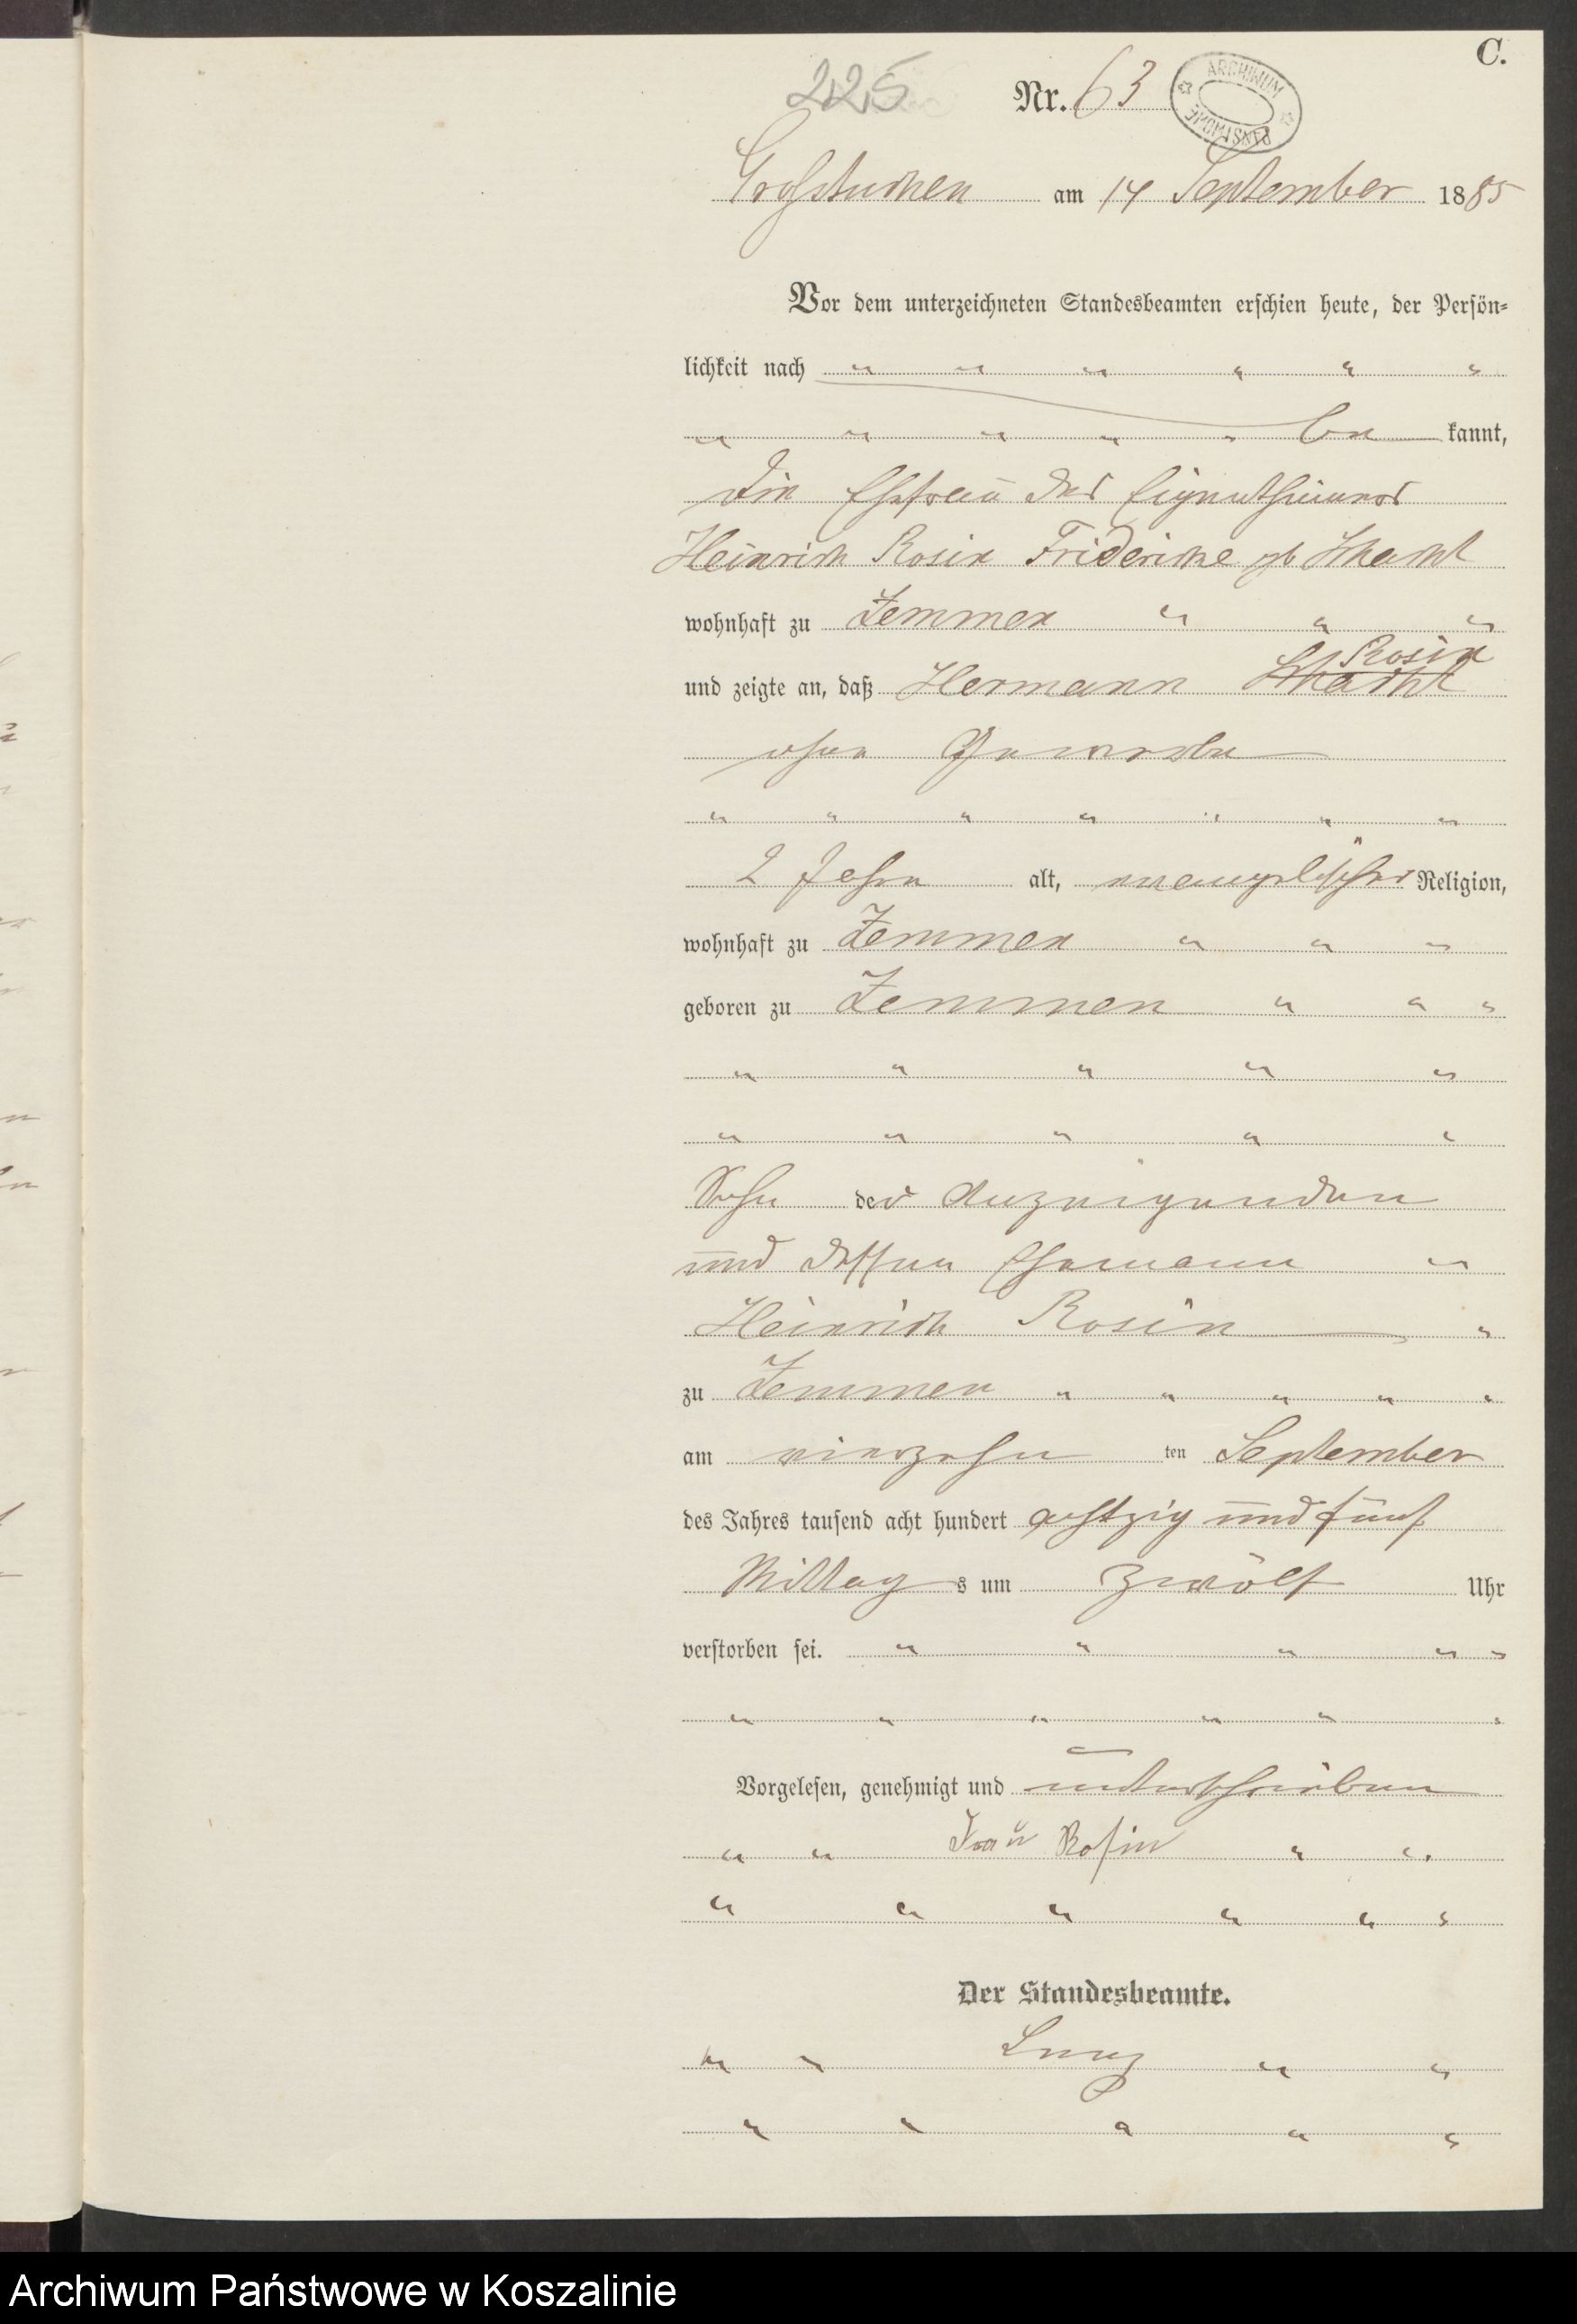 C.
225 Nr. 63
ARCHIWUM PAŃSTWOWE
Großtuchen am 14 September 1885
Vor dem unterzeichneten Standesbeamten erschien heute, der Persön-
lichkeit nach " " " " " "
" " " " " be kannt,
die Ehefrau des Eigenthümers
Heinrich Rosin Fridericke gb
wohnhaft zu Zemmen " " "
Rosin
und zeigte an, daß Hermann
ohne Gewerbe
" " " " " " "
2 Jahre alt, evangelischer Religion,
wohnhaft zu Zemmen " " "
geboren zu Zemmen " " "
" " " " "
" " " " "
Sohn der Anzeigenden
und dessen Ehemann "
Heinrich Rosin "
zu Zemmen " " " " "
am vierzehn ten September
des Jahres tausend acht hundert achtzig und fünf
Mittag s um zwölf Uhr
verstorben sei. " " " " "
" " " " " "
Vorgelesen, genehmigt und unterschrieben
" " Frau Rosin " "
" " " " " "
Der Standesbeamte.
" " " "
" " " " "
Archiwum Państwowe w Koszalinie